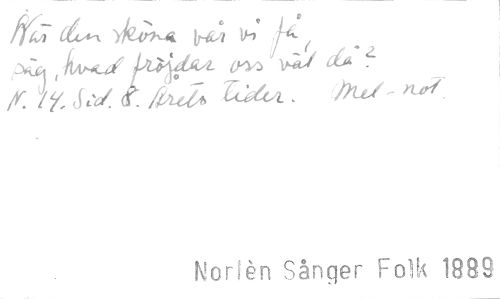 När den sköna vår vi få,
säg, hvad fröjdar oss väl då?
N. 14. Sid. 8. Årets tider. Mel-not.
Norlèn Sånger Folk 1889